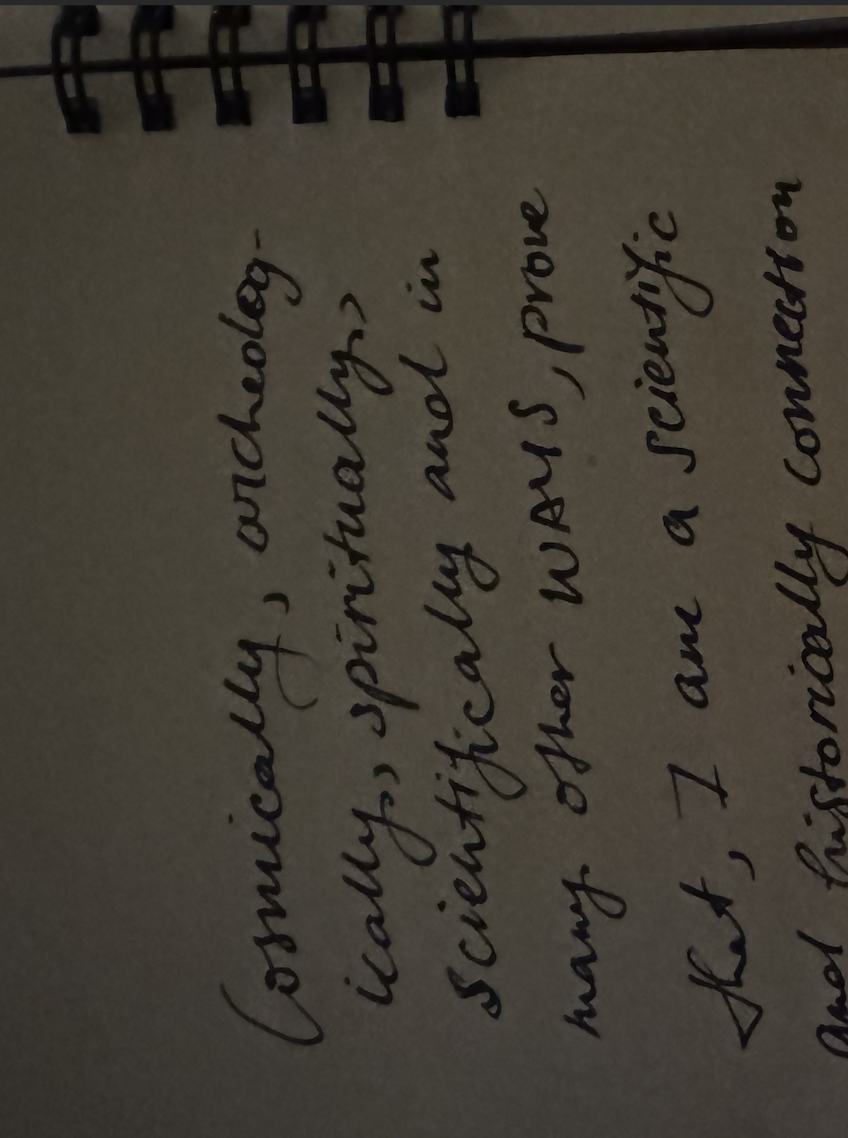 Cosmically, archeolog-
ically, spiritually,
scientifically and in
many other WAYS, prove
that, I am a scientific
and historically connection